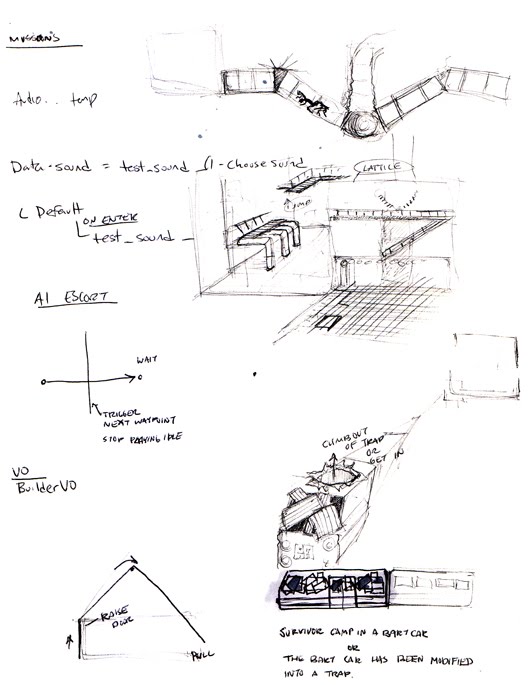 Audio.. temp
Data-sound = test_sound
LATTICE
Default
ON ENTER
test_sound
AI ESCORT
WAIT
TRIGGER
NEXT WAYPOINT
STOP PLAYING IDLE
CLIMB OUT
OF TRAP
OR
GET IN
VO
Builder VO
RAISE
DOOR
PULL
SURVIVOR CAMP IN A BART CAR
OR
THE BART CAR HAS BEEN MODIFIED
INTO A TRAP.